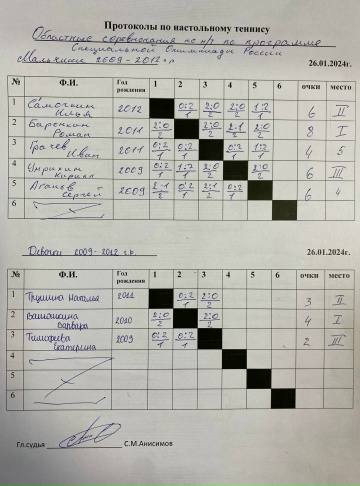 Протоколы по настольному теннису
Областные соревнования по н/т по программе
Специальной Олимпиады России
Мальчики 2009 - 2012 г.р
26.01.2024г.
№ Ф.И. Год рождения 1 2 3 4 5 6 очки место
1 Самочкин Илья 2012 0:2 1 2:0 2 2:0 2 1:2 1 6 II
2 Роман 2011 2:0 2 2:0 2 2:1 2 2:0 2 8 I
3 Грачев Иван 2011 0:2 1 0:2 1 0:2 1 1:2 1 4 5
4 Кирилл 2009 0:2 1 1:2 1 2:0 2 2:0 2 6 III
5 Агапов Сергей 2009 2:1 2 0:2 1 2:1 2 0:2 1 6 4
6
Девочки 2009-2012 г.р.
26.01.2024г.
№ Ф.И. Год рождения 1 2 3 4 5 6 очки место
1 Наталья 2011 0:2 1 2:0 2 3 II
2 Варвара 2010 2:0 2 2:0 2 4 I
3 Тимофеева Екатерина 2009 0:2 1 0:2 1 2 III
4
5
6
Гл.судья С.М.Анисимов